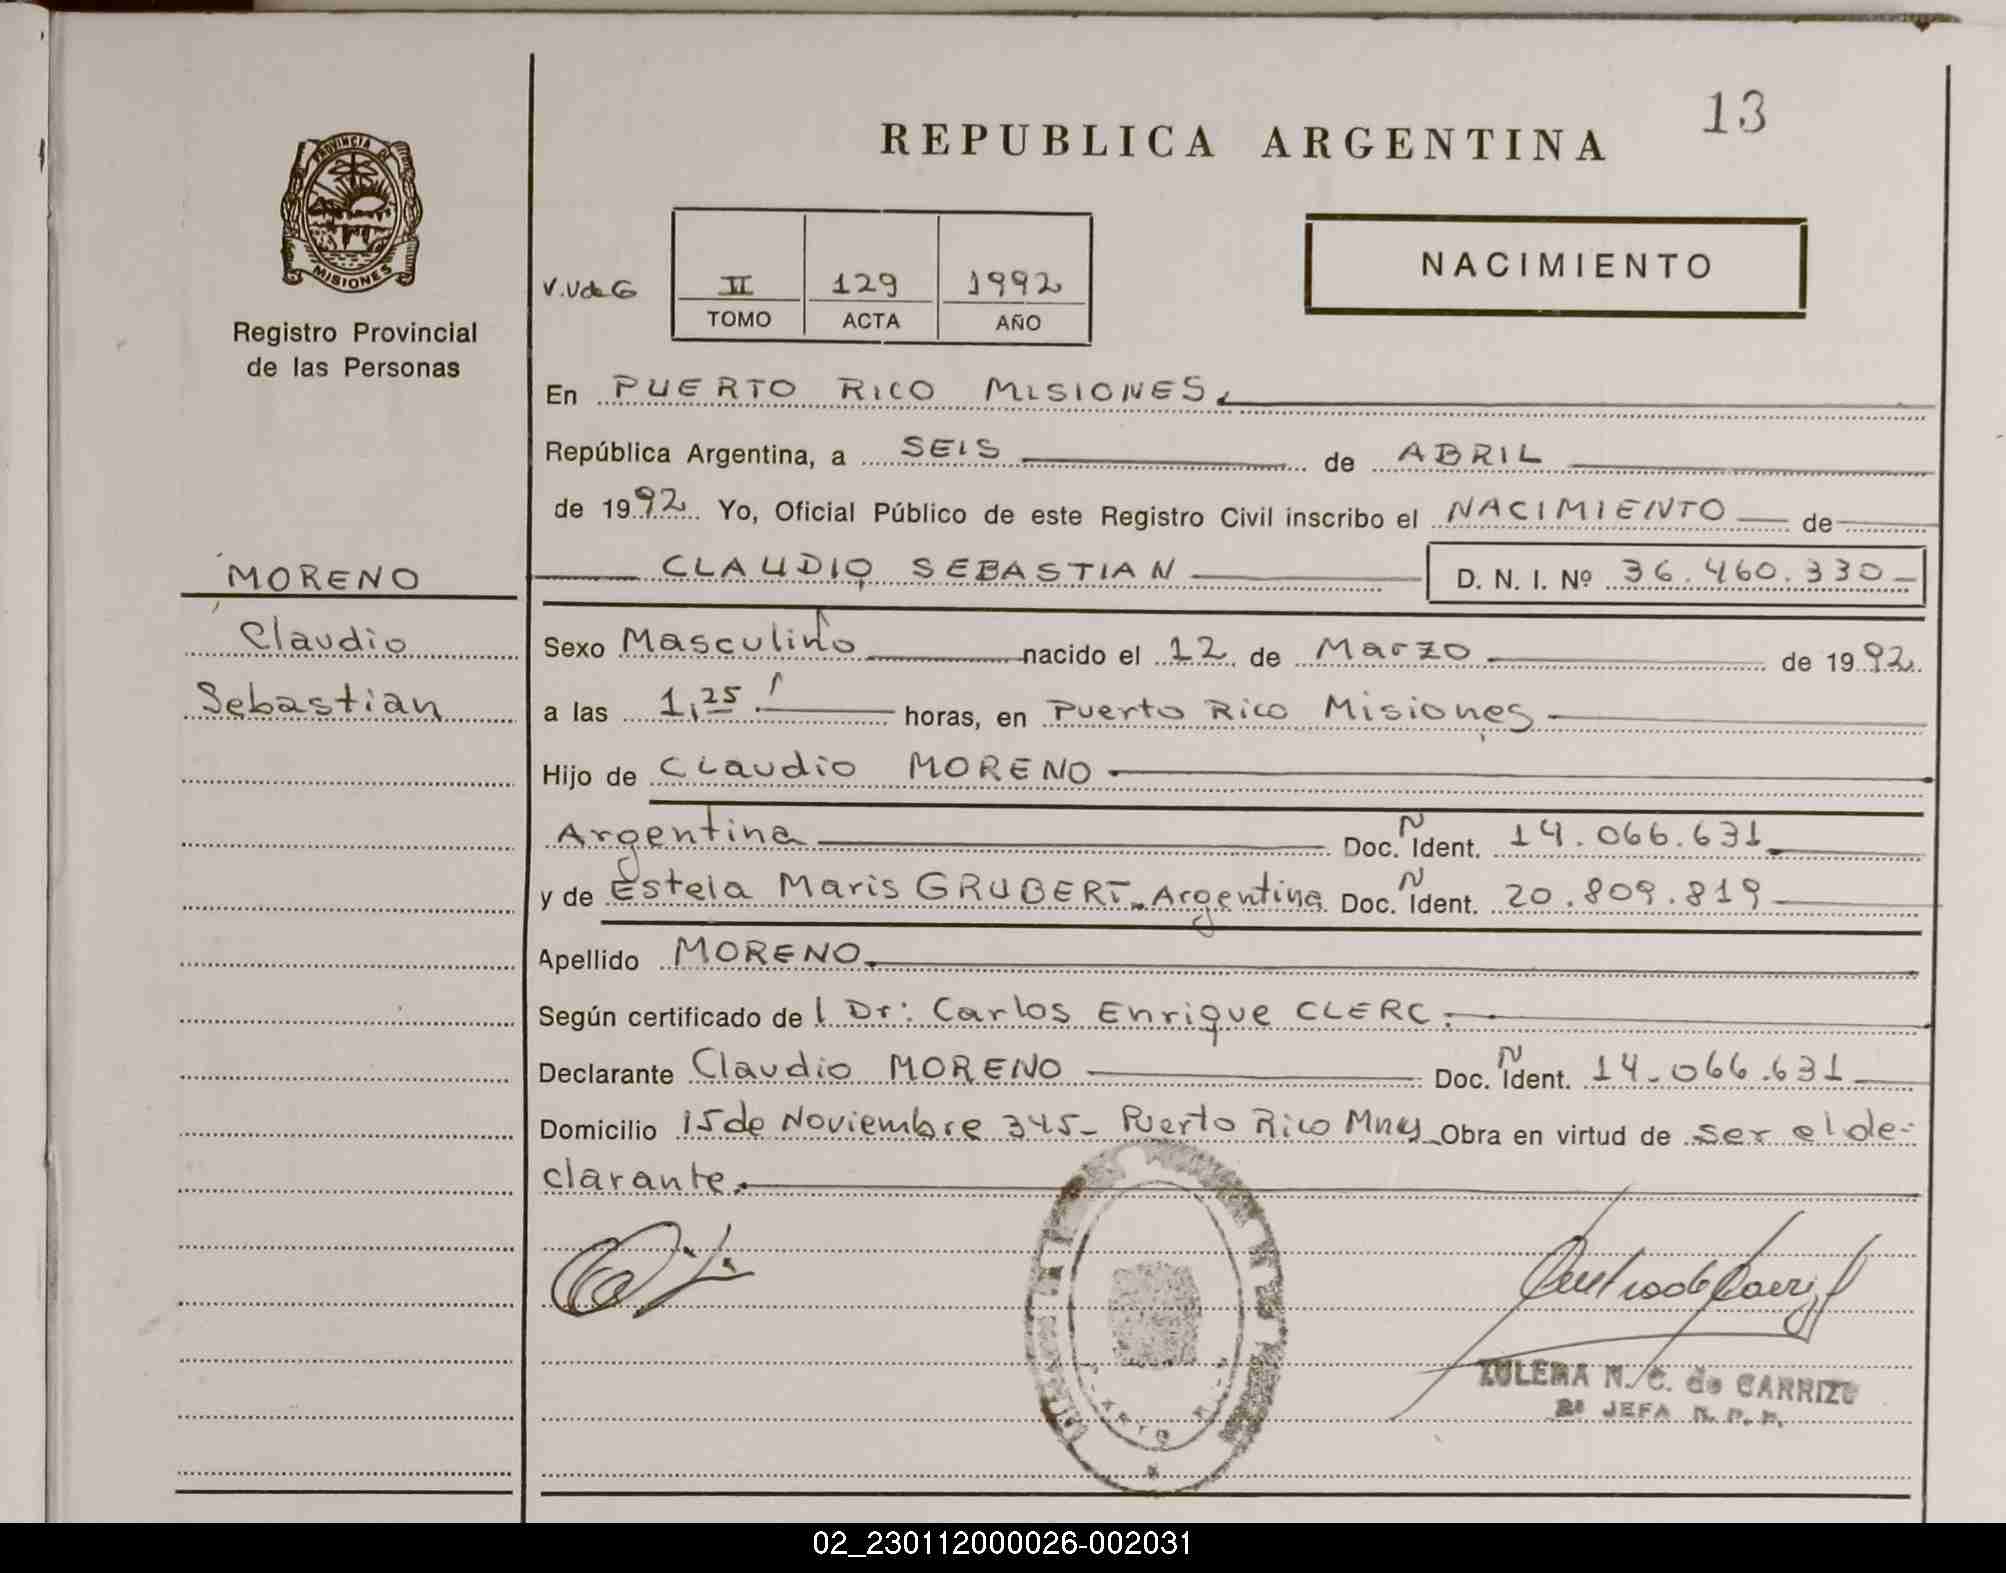 13
REPUBLICA ARGENTINA
PROVINCIA DE
MISIONES
Registro Provincial
de las Personas
NACIMIENTO
V.VdeG
II 129 1992
TOMO ACTA AÑO
En PUERTO RICO MISIONES.
República Argentina, a SEIS de ABRIL
de 1992 Yo, Oficial Público de este Registro Civil inscribo el NACIMIENTO de
CLAUDIO SEBASTIAN D. N. I. Nº 36.460.330
MORENO
Claudio
Sebastian
Sexo Masculino nacido el 12 de Marzo de 1992
a las 1,25 horas, en Puerto Rico Misiones
Hijo de Claudio MORENO
Argentina Doc. Ident. 14.066.631
y de Estela Maris GRUBERT. Argentina Doc. Ident. 20.809.819
Apellido MORENO.
Según certificado de l Dr: Carlos Enrique CLERC.
Declarante Claudio MORENO Doc. Ident. 14.066.631
Domicilio 15 de Noviembre 345- Puerto Rico Mnes Obra en virtud de ser el de-
clarante.
ZULEMA N. C. de CARRIZO
2ª JEFA R. P. P.
02_230112000026-002031